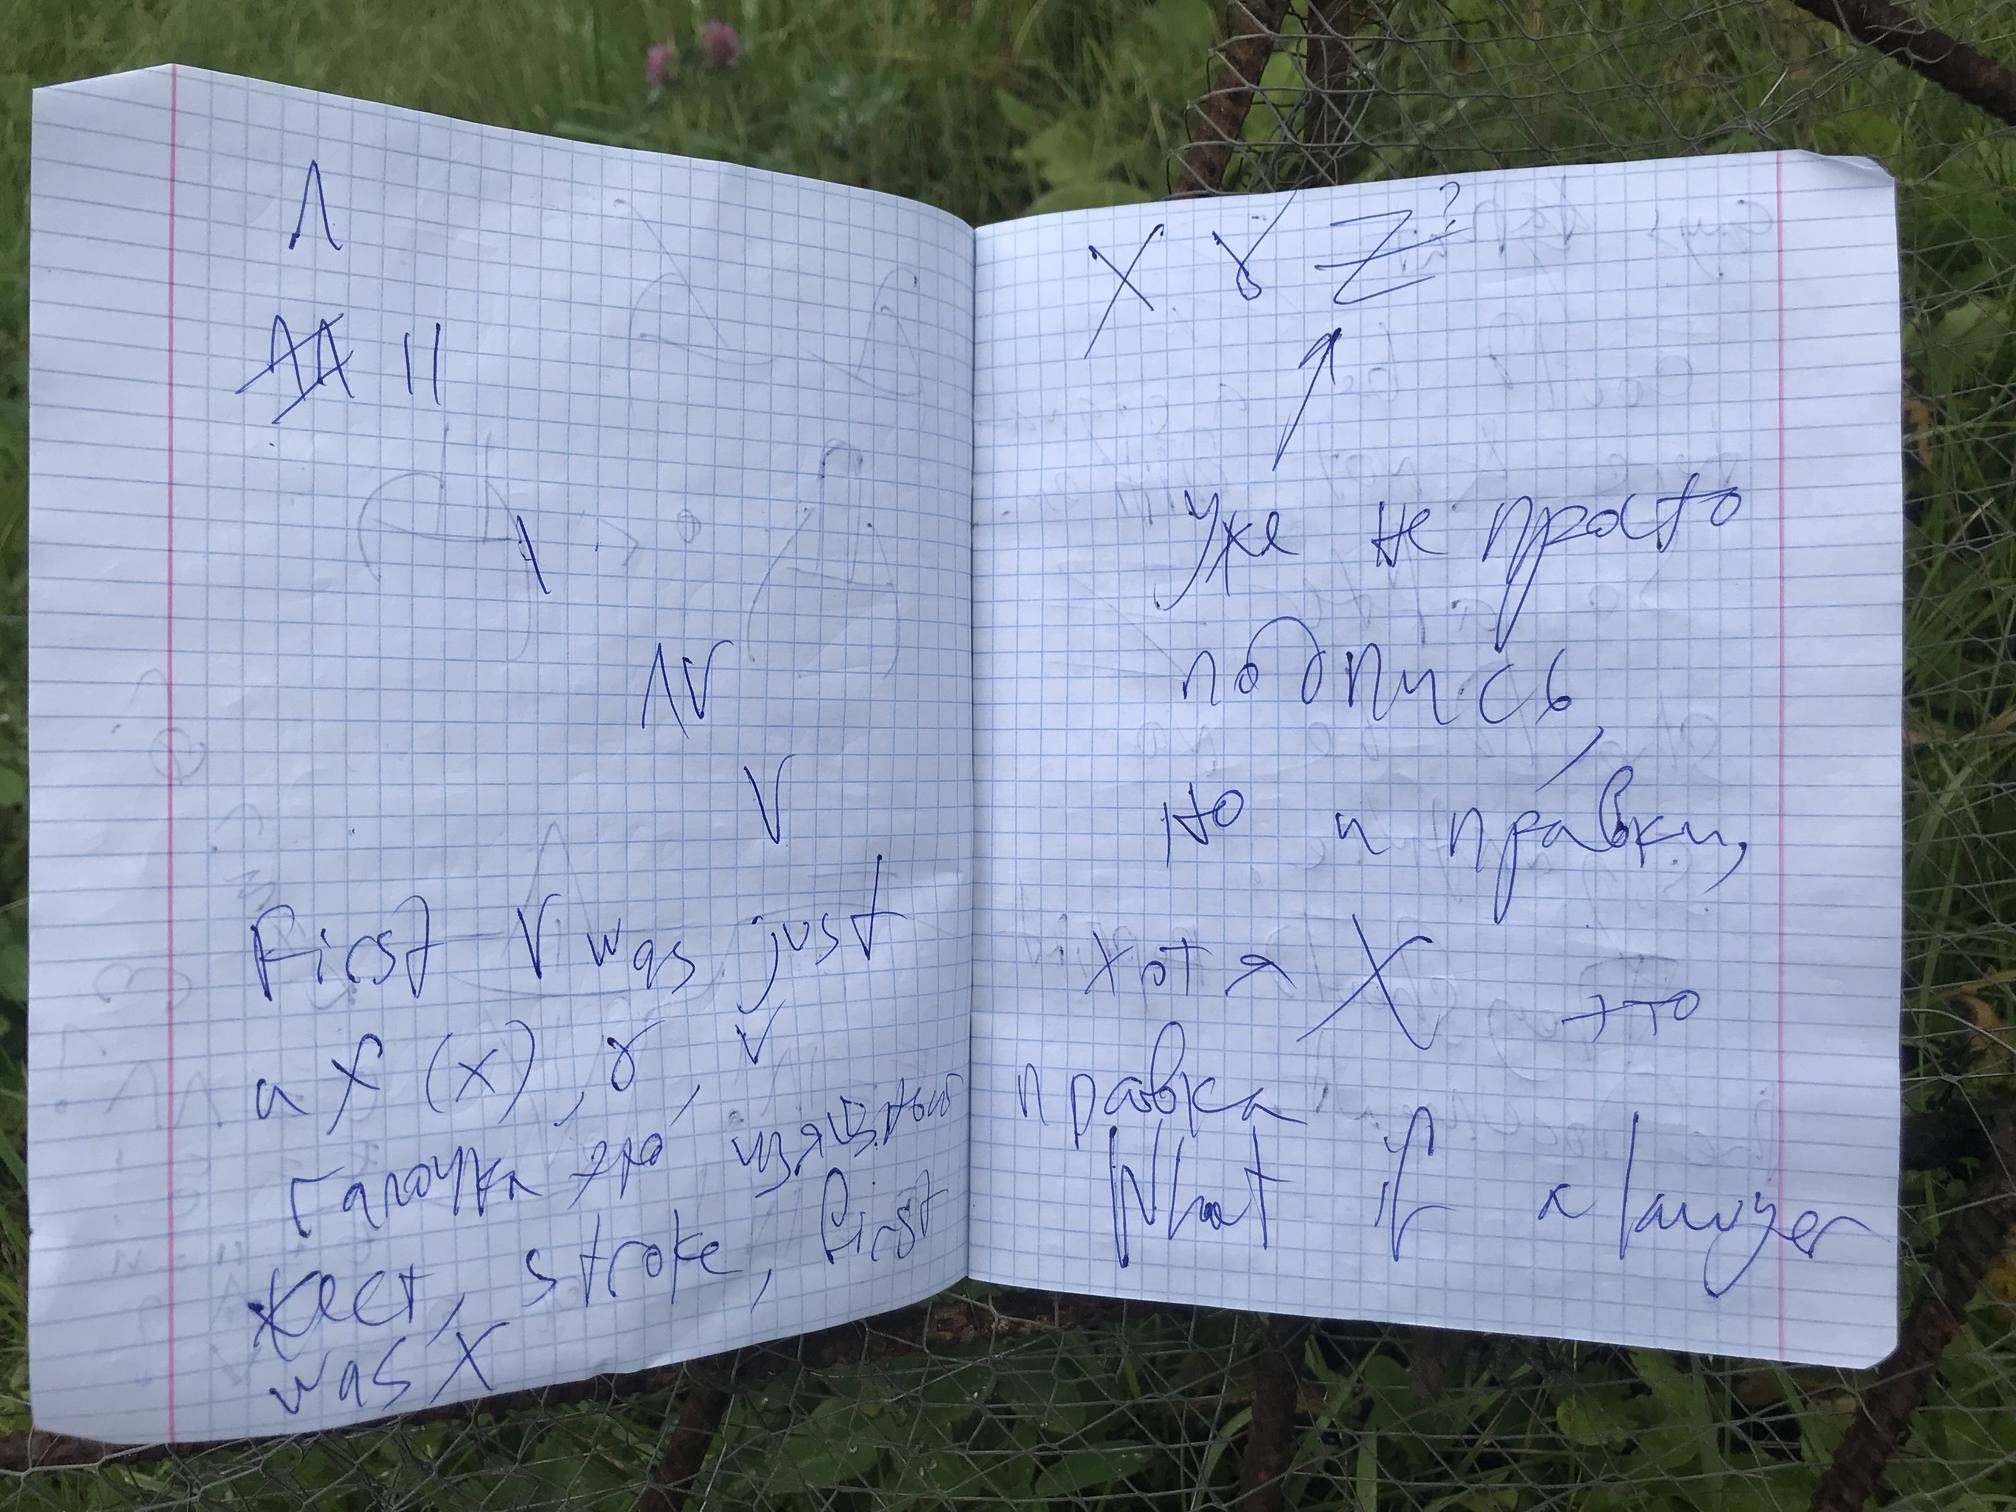 Λ
ΛΛ II
\
ΛV
V
First V was just
a X (x), r, V
галочка это изящный
жест, stroke, first
was X
X Y Z?
Уже не просто
подпись,
но и правки,
хотя X это
правка
What if a lawyer